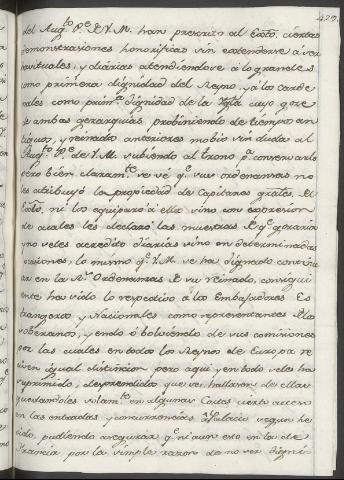 429.
del Aug.to P.e de V. M. han prescrito al Exto. ciertas
demonstraciones honorificas sin extenderse á ser
havituales, y diarias atendiendose á los grandes
como primera dignidad del Reyno, y á los carde
nales como prim.a dignidad de la Ygla cuyo goze
de ambas gerarquias probiniendo de tiempo an
tiguos, y reinados anteriores no hizo sin duda al
Aug.to P.e de V. M. subiendo al trono p.a conservarlo
pero bien claram.te se vé q.e sus ordenanzas no
les atribuyó la propiedad de Capitanes grales. del
Exto, ni los equiparó á ella sino con expresion
de quales les declaró las muestras de q.e gozarian
y no seles acreditó diarias sino en determinadas
ocasiones, lo mismo q.e V. M. se ha dignado continu
ar en la R.s Ordenanzas de su reinado, consigui
ente ha sido lo respectivo á los Embajadores Es
trangeros y Nacionales como representantes de los
soberanos, yendo ó bolviendo de sus comisiones
por las cuales en todos los Reynos de Europa re
civen igual distincion pero aqui y en todo se les ha
suprimido, desprendidos que se hallaron de ellas
quedandoles solam.te en algunas Cortes cierto acceso
en las entradas y concurrencias á Palacio segun he
oido, pudiendo asegurar q.e ni aun esto en la de
Francia por la simple razon de no ser digni